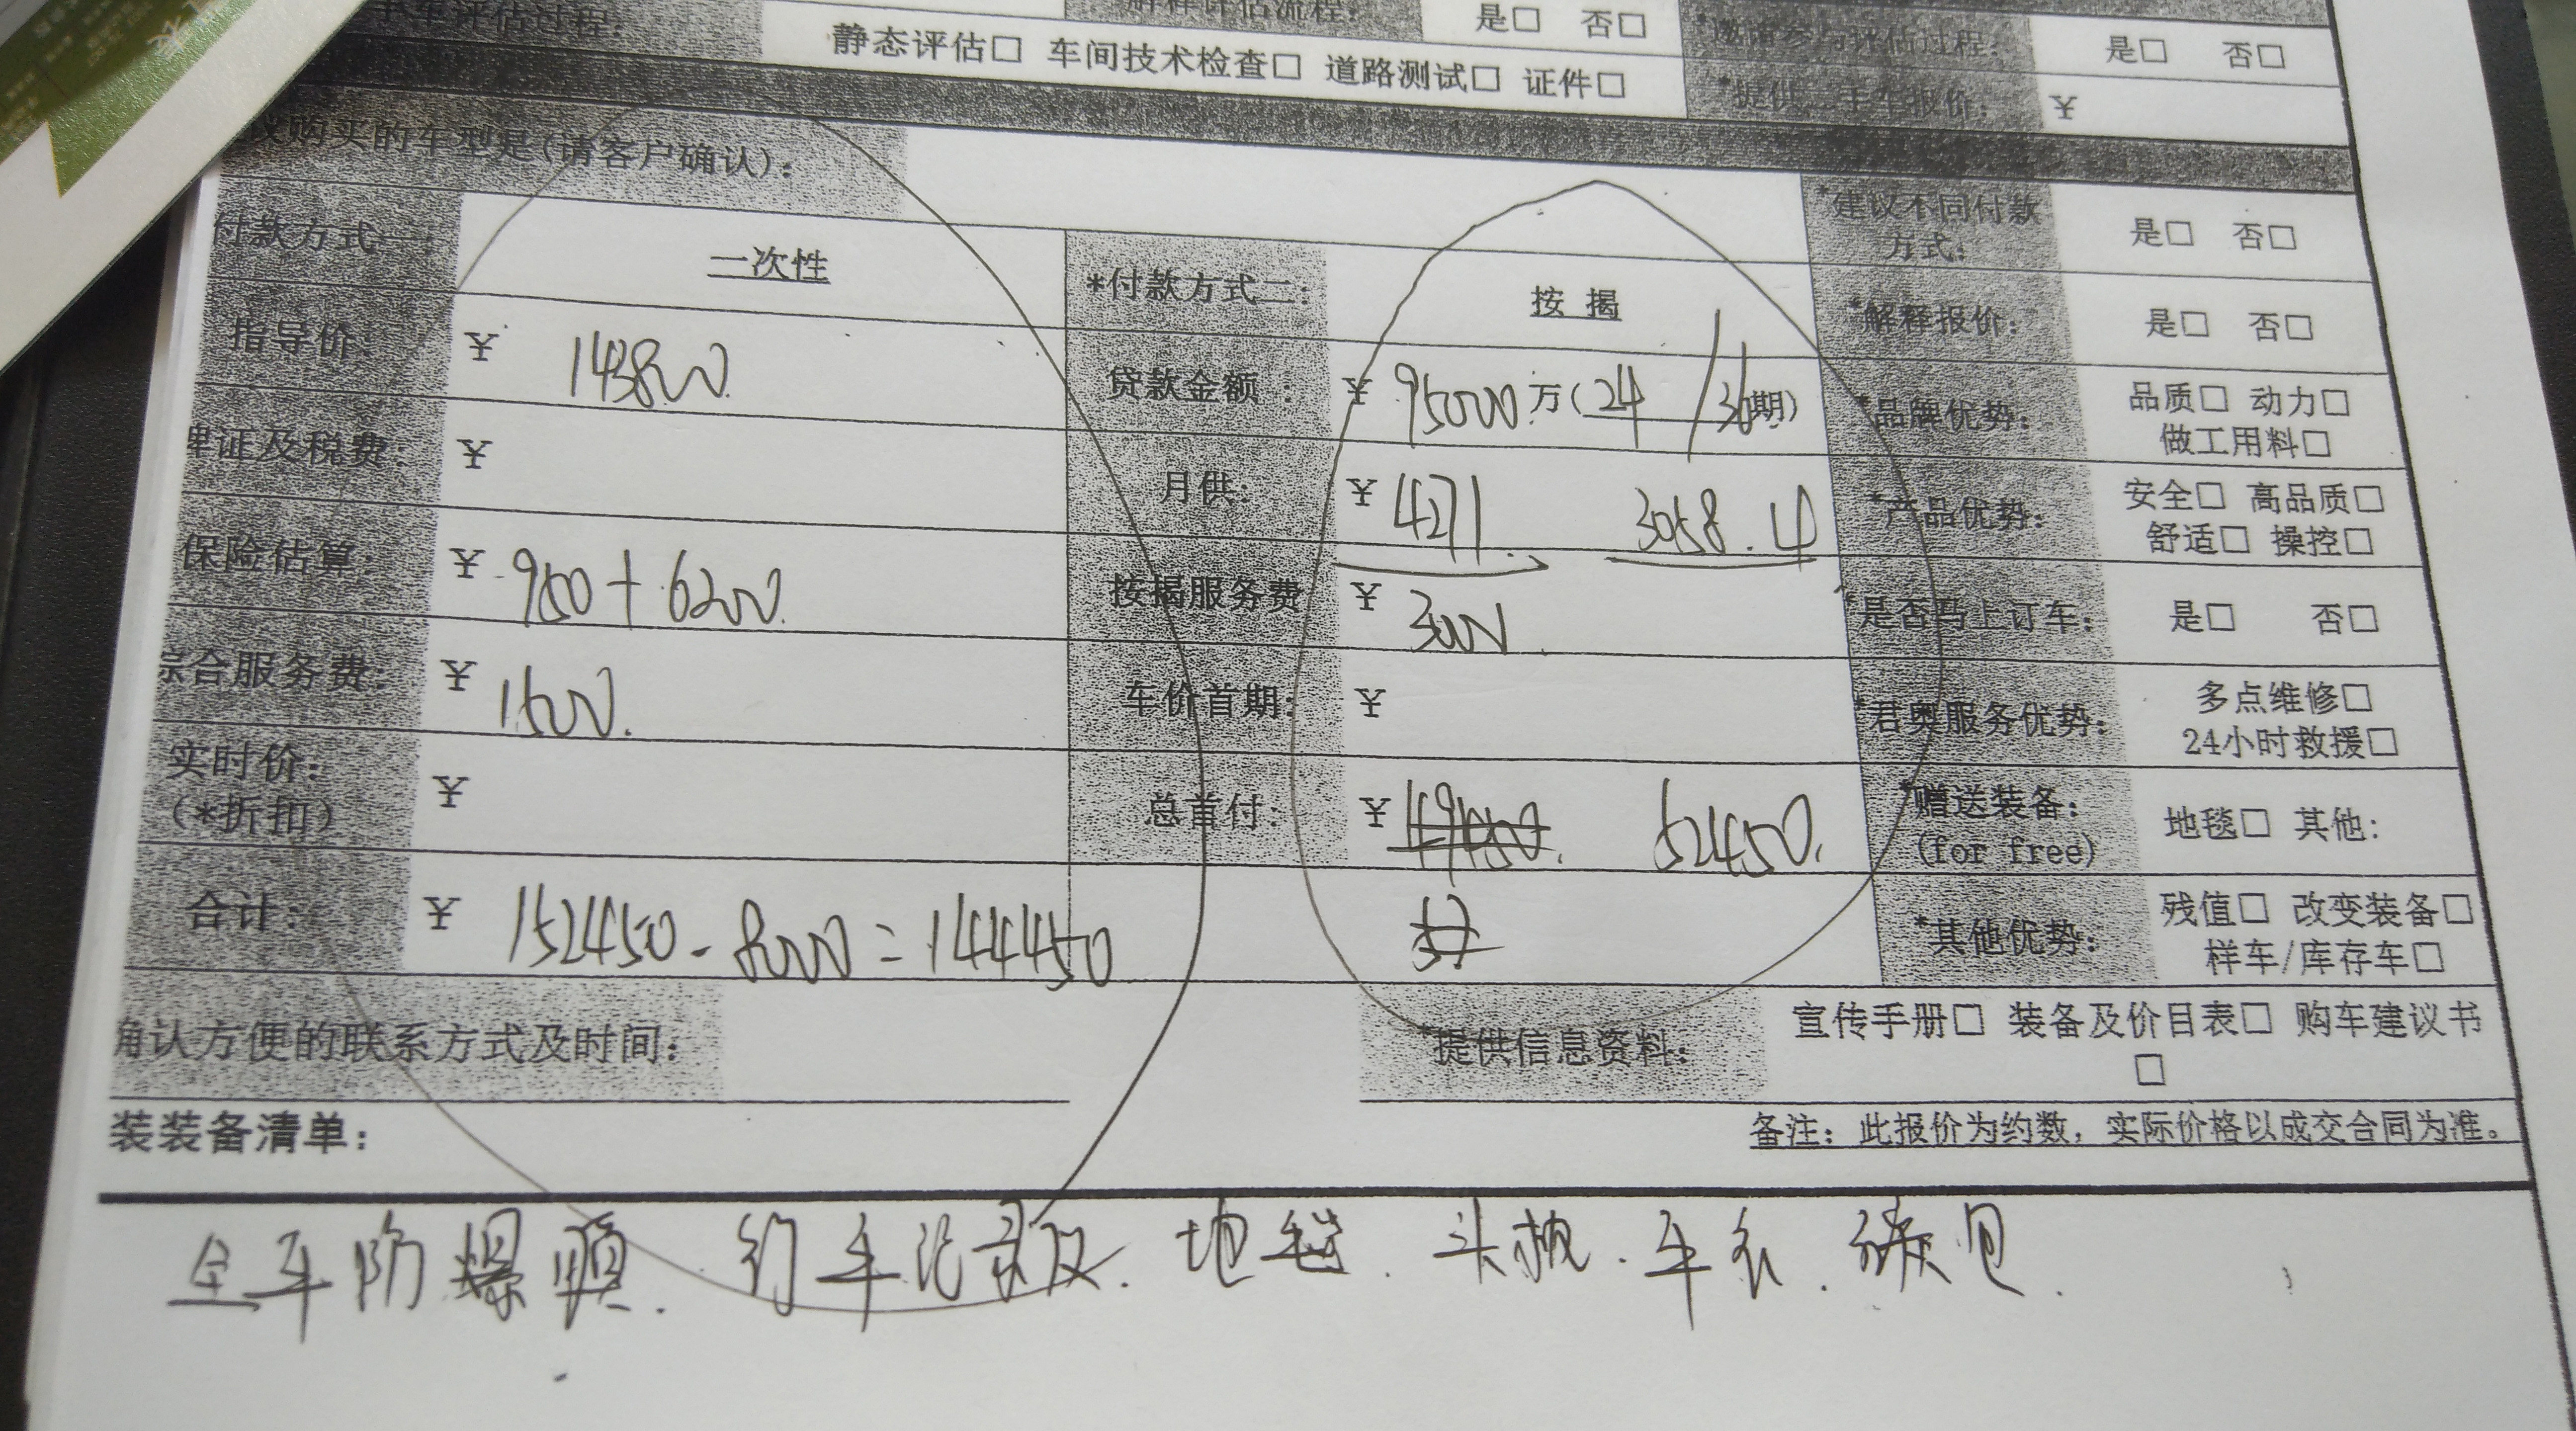 车评估过程:
静态评估□ 车间技术检查□ 道路测试□ 证件□
解释评估流程:
是□ 否□
*邀请参与评估过程:
是□ 否□
*提供二手车报价:
¥
议购买的车型是(请客户确认):
付款方式一:
一次性
*付款方式二:
按 揭
*建议不同付款
方式:
是□ 否□
指导价:
¥ 143800
贷款金额:
¥ 95000 万(24 / 36期)
*解释报价:
是□ 否□
证及税费:
¥
月供:
¥ 4271. 3058.4
*品牌优势:
品质□ 动力□
做工用料□
保险估算:
¥ 950+6200.
按揭服务费
¥ 3000
*产品优势:
安全□ 高品质□
舒适□ 操控□
综合服务费:
¥ 1500.
车价首期:
¥
*是否马上订车:
是□ 否□
实时价:
(*折扣)
¥
总首付:
¥ 52450.
*君奥服务优势:
多点维修□
24小时救援□
合计:
¥ 152450-8000=144450
*赠送装备:
(for free)
地毯□ 其他:
*其他优势:
残值□ 改变装备□
样车/库存车□
确认方便的联系方式及时间:
*提供信息资料:
宣传手册□ 装备及价目表□ 购车建议书
□
装装备清单:
备注: 此报价为约数, 实际价格以成交合同为准。
全车防爆膜. 行车记录仪. 地毯. 头枕. 车衣. 碳包.